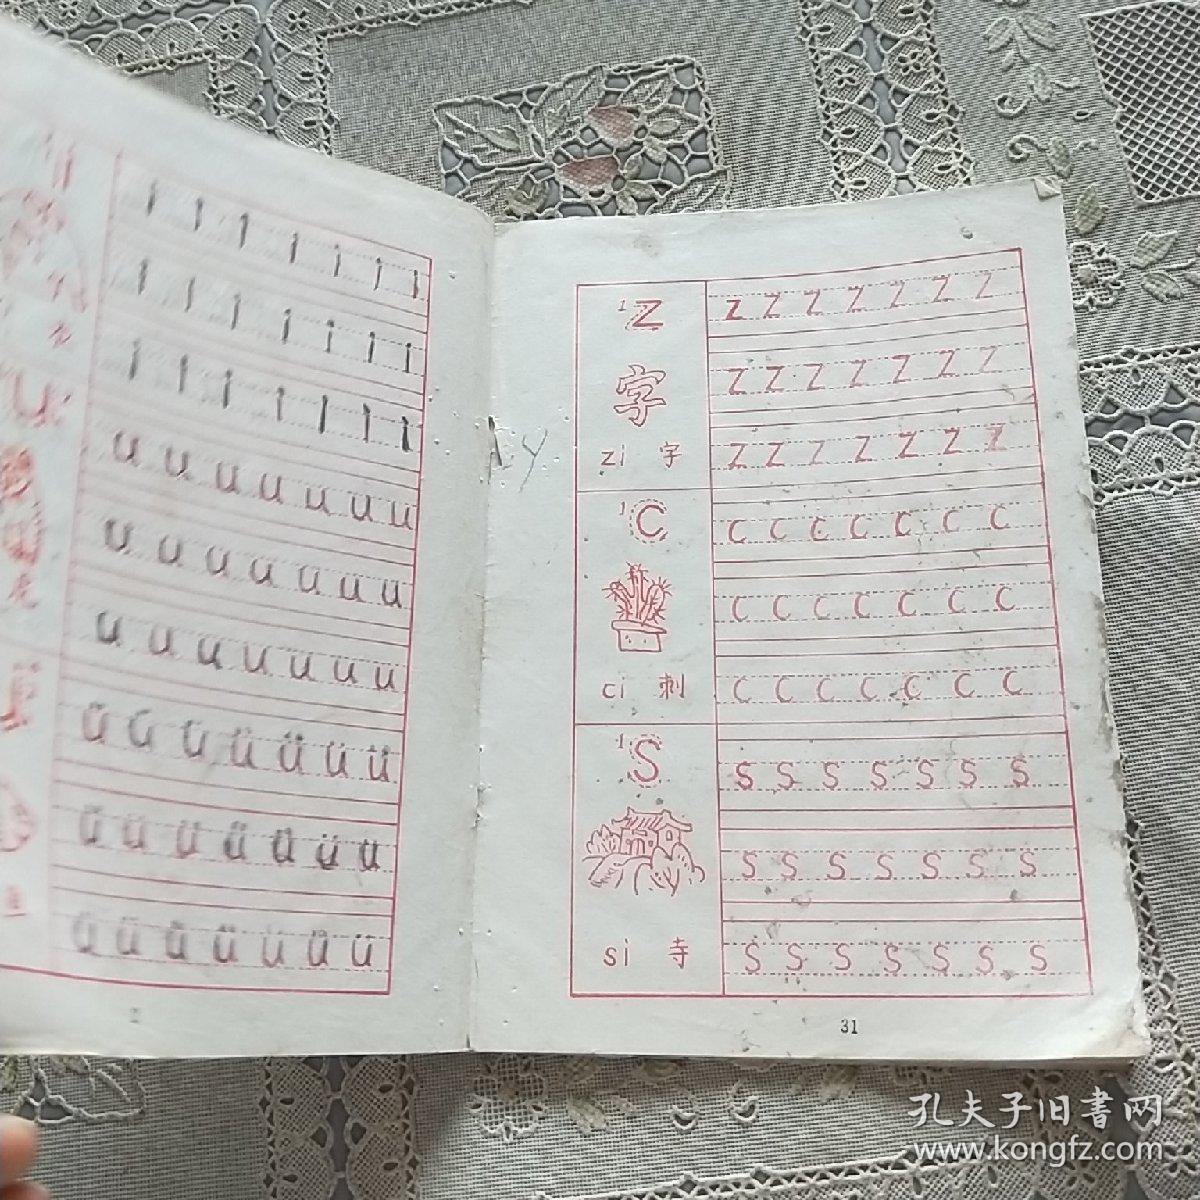 i i i i i i i
i i i i i i i
i i i i i i i
u u u u u u u
u u u u u u u
u u u u u u u
ü ü ü ü ü ü ü
ü ü ü ü ü ü ü
ü ü ü ü ü ü ü
2
1 z
字
zi 字
z z z z z z z
z z z z z z z
z z z z z z z
1 c
ci 刺
c c c c c c c
c c c c c c c
c c c c c c c
1 s
si 寺
s s s s s s s
s s s s s s s
s s s s s s s
31
孔夫子旧書网
www.kongfz.com